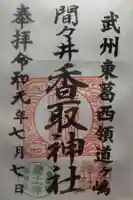 武州東葛西領道ヶ嶋
間々井香取神社
奉拝令和元年七月七日